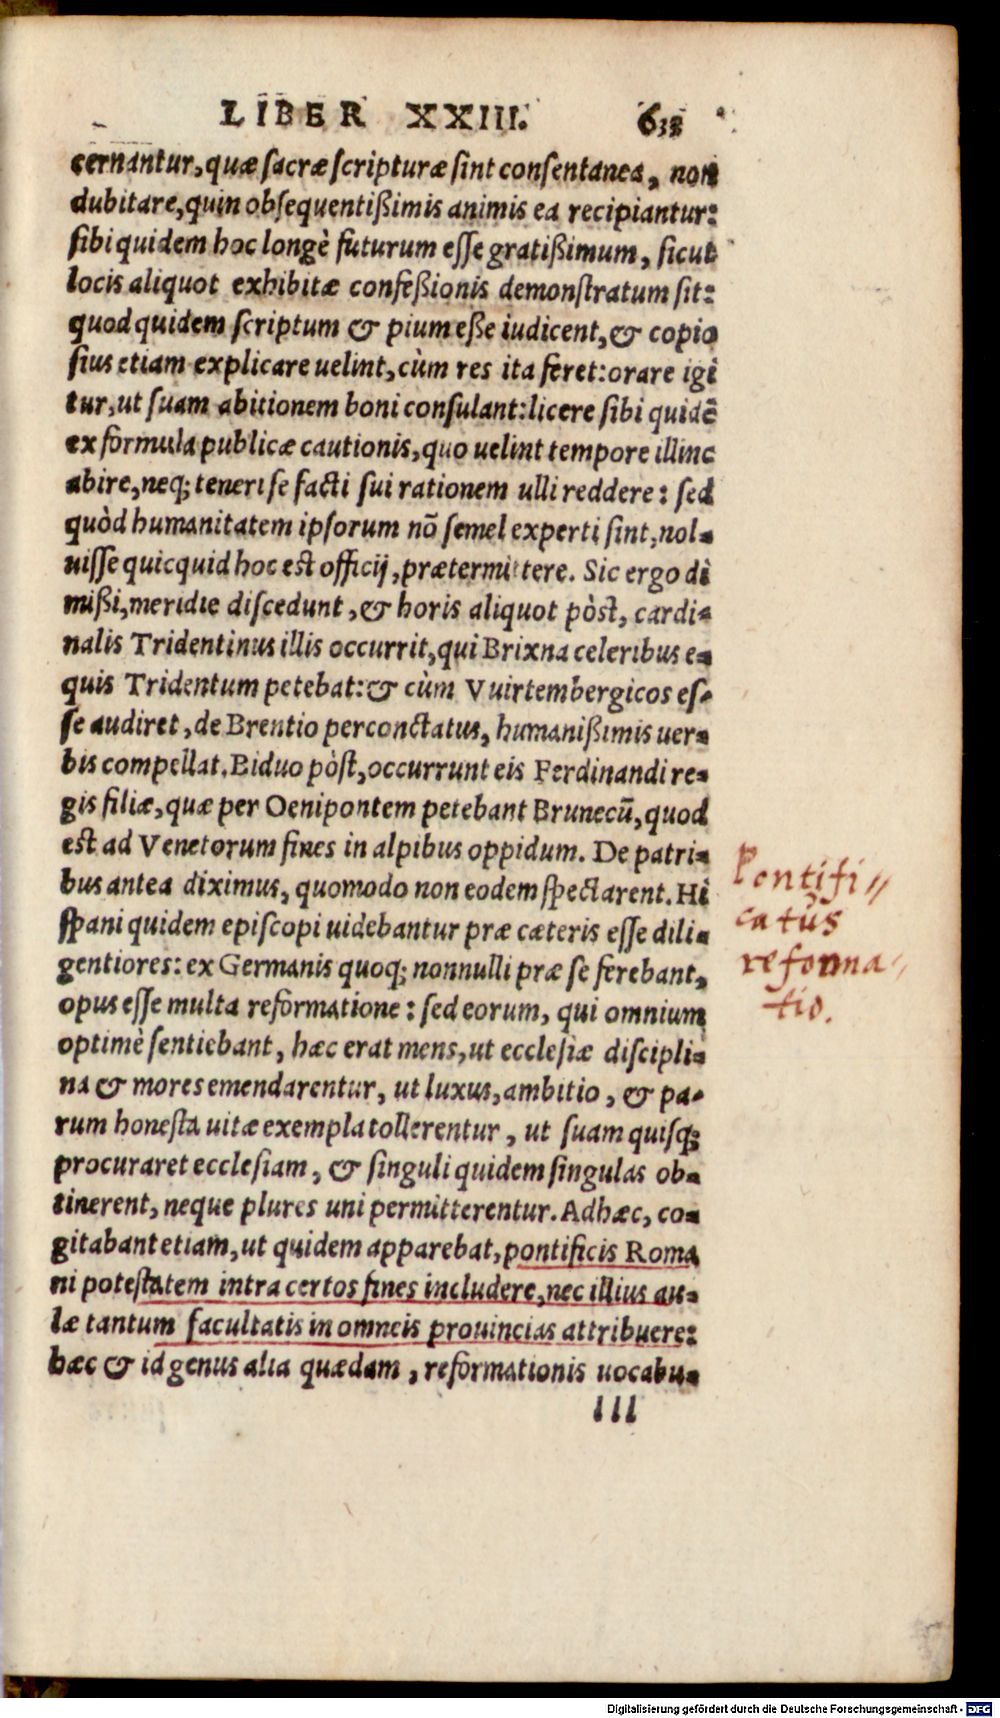 LIBER XXIII. 638
cernantur, quæ sacræ scripturæ sint consentanea, non
dubitare, quin obsequentißimis animis ea recipiantur:
sibi quidem hoc longè futurum esse gratißimum, sicut
locis aliquot exhibitæ confeßionis demonstratum sit:
quod quidem scriptum & pium eße iudicent, & copio
sius etiam explicare uelint, cùm res ita feret: orare igi
tur, ut suam abitionem boni consulant: licere sibi quidẽ
ex formula publicæ cautionis, quo uelint tempore illinc
abire, neq; teneri se facti sui rationem ulli reddere: sed
quòd humanitatem ipsorum nõ semel experti sint, nol-
uisse quicquid hoc est officij, prætermittere. Sic ergo di
mißi, meridie discedunt, & horis aliquot pòst, cardi-
nalis Tridentinus illis occurrit, qui Brixna celeribus e-
quis Tridentum petebat: & cùm Vuirtembergicos es-
se audiret, de Brentio perconctatus, humanißimis uer-
bis compellat. Biduo pòst, occurrunt eis Ferdinandi re-
gis filiæ, quæ per Oenipontem petebant Brunecũ, quod
est ad Venetorum fines in alpibus oppidum. De patri-
bus antea diximus, quomodo non eodem spectarent. Hi
spani quidem episcopi uidebantur præ cæteris esse dili-
gentiores: ex Germanis quoq; nonnulli præ se ferebant,
opus esse multa reformatione: sed eorum, qui omnium
optimè sentiebant, hæc erat mens, ut ecclesiæ discipli-
na & mores emendarentur, ut luxus, ambitio, & pa-
rum honesta uitæ exempla tollerentur, ut suam quisq;
procuraret ecclesiam, & singuli quidem singulas ob-
tinerent, neque plures uni permitterentur. Adhæc, co-
gitabant etiam, ut quidem apparebat, pontificis Roma
ni potestatem intra certos fines includere, nec illius au-
læ tantum facultatis in omneis prouincias attribuere:
hæc & id genus alia quædam, reformationis uocabu-
lll
Pontifi//
catus
reforma
tio.
Digitalisierung gefördert durch die Deutsche Forschungsgemeinschaft - DFG